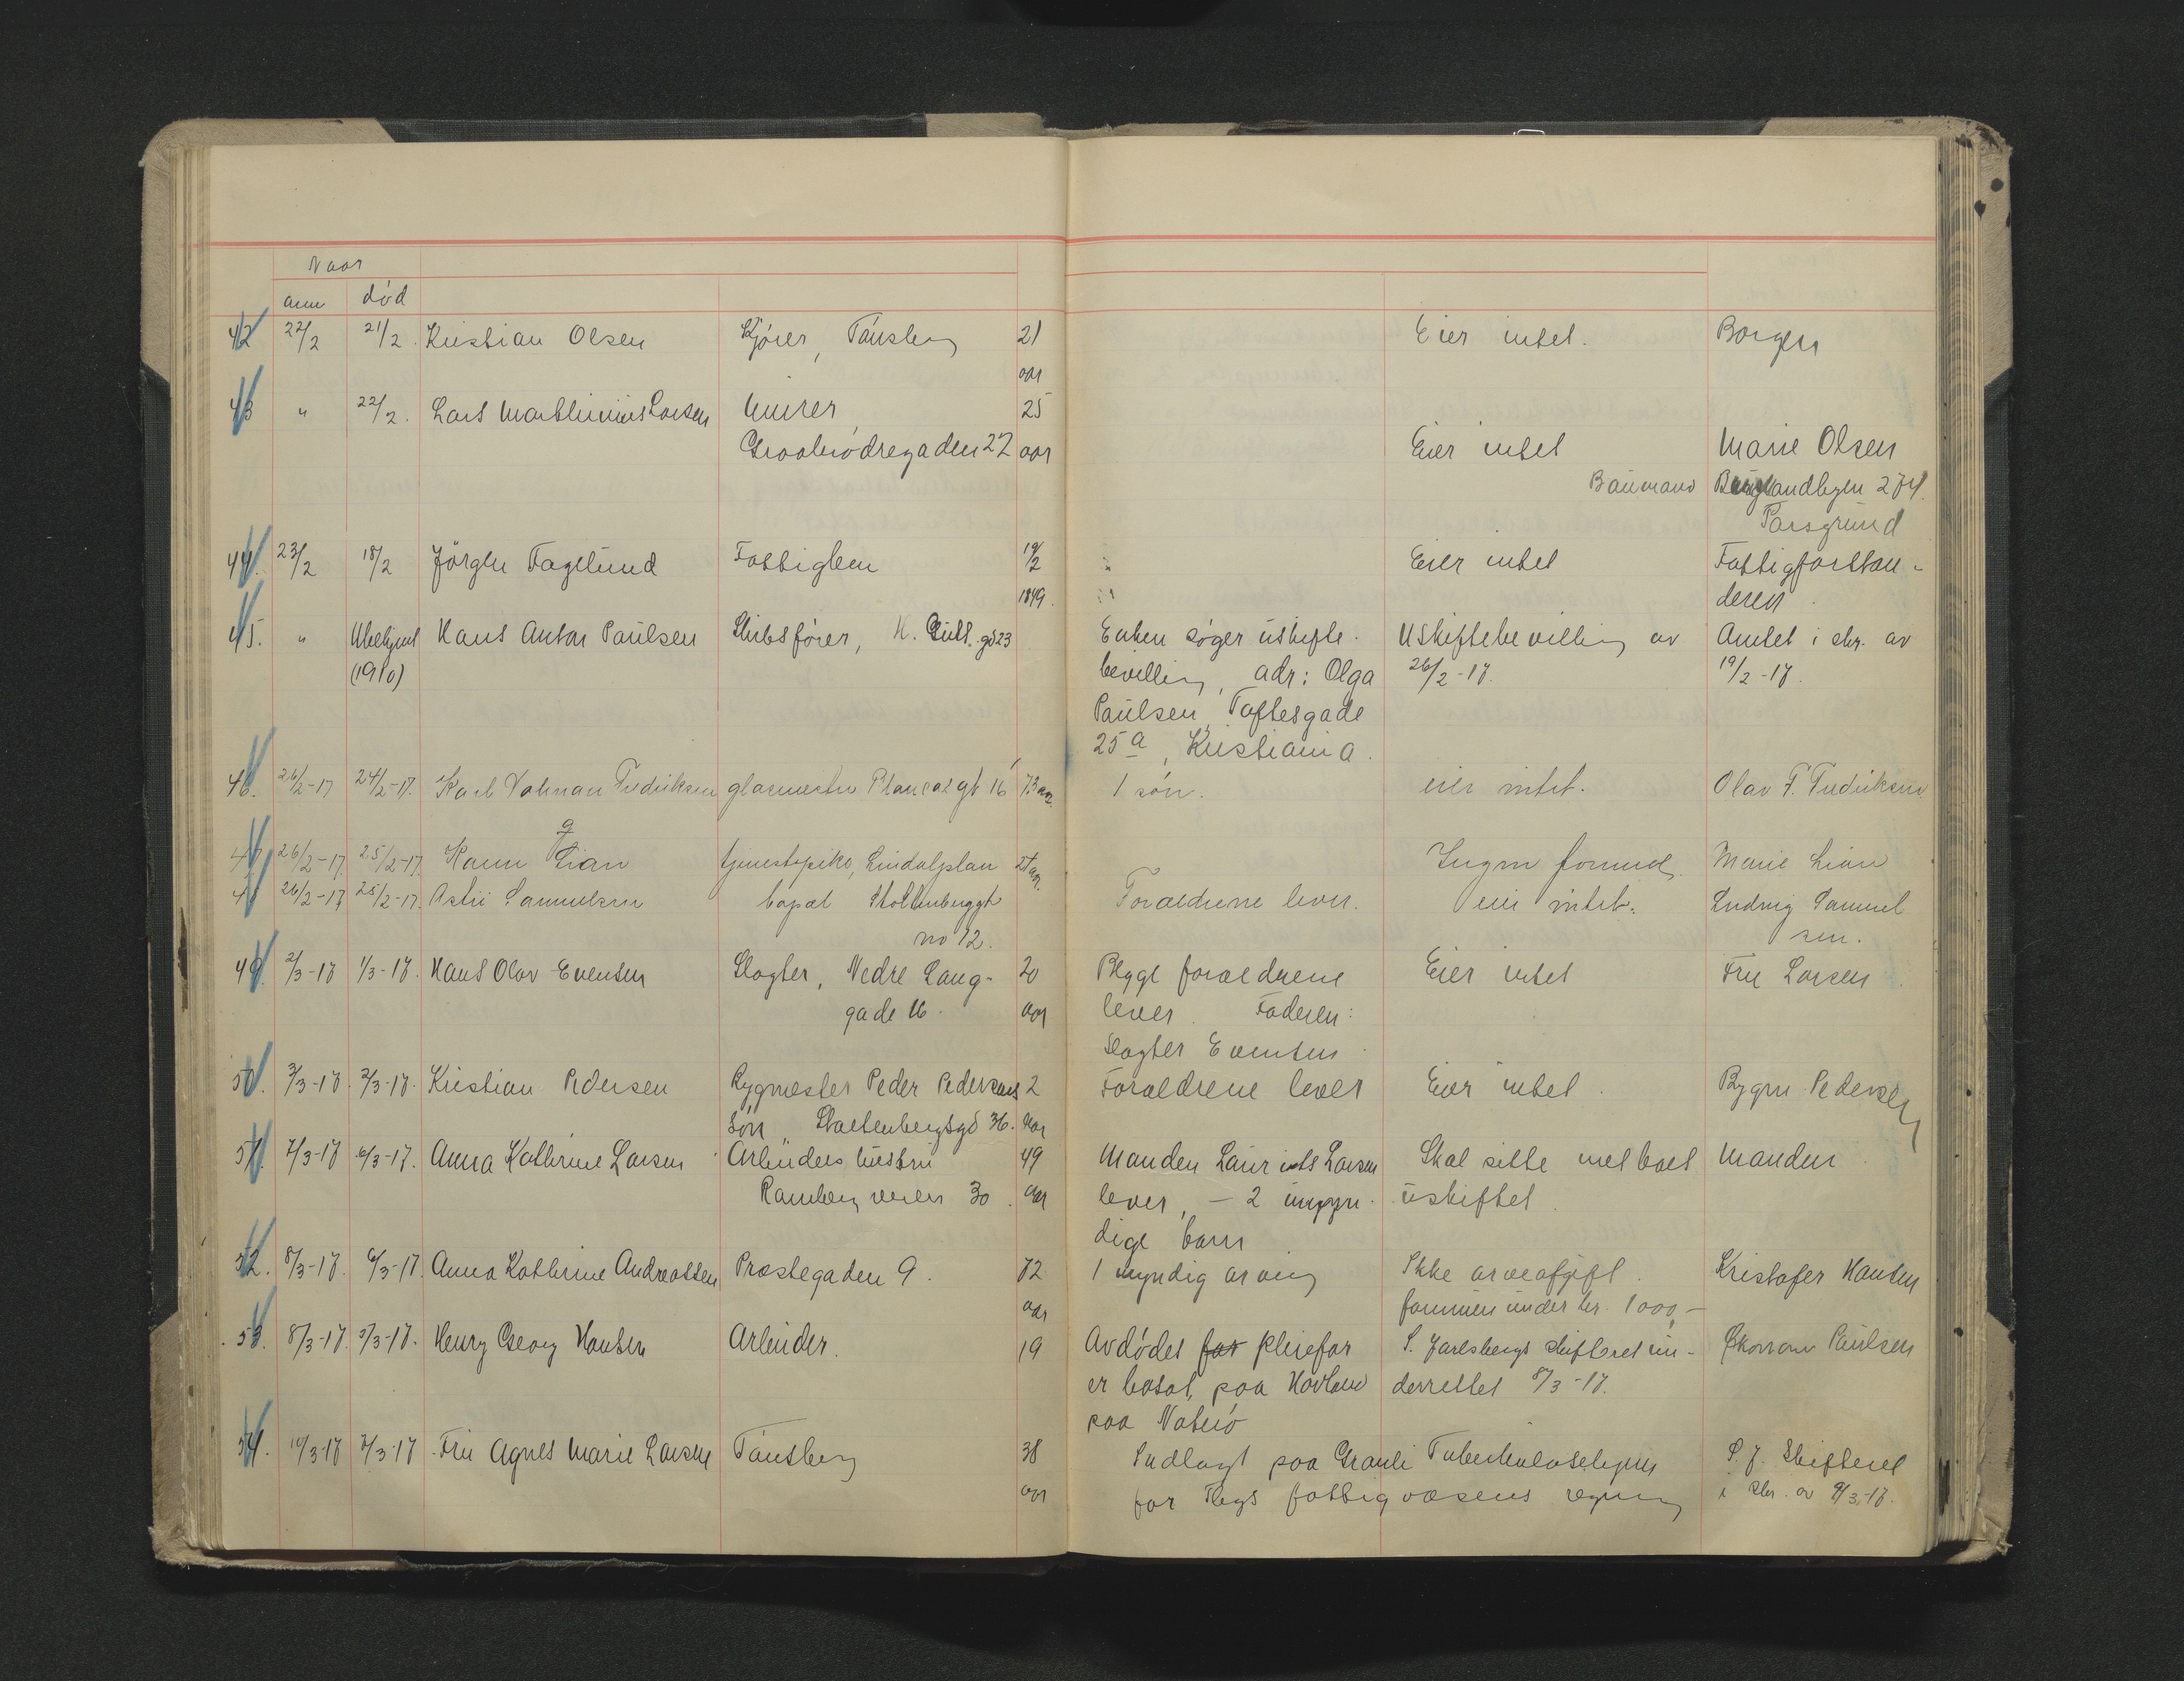 Naar
anm død
42 22/2 21/2 Kristian Olsen Kjører, Tønsberg 21 Eier intet. Borgen
aar
43 " 22/2. Lars Marthinius Larsen Murer 25
Graabrødregaden 27 aar Eier intet Marie Olsen
Baumann landbyen 274.
Porsgrund
44. 23/2 18/2 Jörgen Fagelund Fattiglem 19/2 Eier intet Fattigforstan-
1849. deren
45. " Ubekjent Hans Anton Paulsen Skibsfører, K. gd 23 Enken søger uskifte- Uskiftebevilling av Amtet i skr. av
(1910) bevilling, adr: Olga 26/2-17. 19/2-17.
Paulsen, Toftesgade
25 a, Kristiania.
46. 26/2-17 24/2-17. Karl Fredriksen glasmester 16 73 aar. 1 søn. eier intet. Olav F. Fredriksen
47 26/2-17. 25/2-17. Lian tjenestepike, Lindalplan aar. Ingen formue. Marie Lian
48 26/2-17 25/2-17. Samuelsen bopæl Stoltenberggt Forældrene lever. eier intet. Ludvig Samuel
no 12. sen.
49. 2/3-17 1/3-17. Hans Olav Evensen Slagter, Nedre Lang- 20 Begge forældrene Eier intet Fru Larsen
gade 16. aar lever. Faderen:
Slagter Evensen
50. 3/3-17. 2/3-17. Kristian Pedersen Bygmester Peder Pedersens 2 Forældrene lever Eier intet. Bygm. Pedersen
søn, Stoltenbergsgd 36. aar
51. 7/3-17 6/3-17. Anna Kathrine Larsen Arbeiders hustru 49 Manden Laurits Larsen Skal sitte med boet Manden
Ramberg veien 30. aar lever, - 2 umyn- uskiftet.
dige barn
52. 8/3-17. 6/3-17. Anna Kathrine Andreassen Præstegaden 9. 72 1 myndig arving Ikke arveafgift. Kristofer Hansen
aar formuen under kr. 1000,-
53. 8/3-17. 5/3-17. Henry Georg Hansen Arbeider. 19 Avdødes far pleiefar S. Jarlsbergs skifteret un- Paulsen
er bosat paa Hovland derrettet 8/3-17.
paa Nøtterø
54. 10/3-17 7/3-17 Fru Agnes Marie Larsen Tønsberg 38 Indlagt paa Granli Tuberkulosehjem S. J. Skifteret
aar for Tbgs fattigvæsens regning i skr. av 9/3-17.